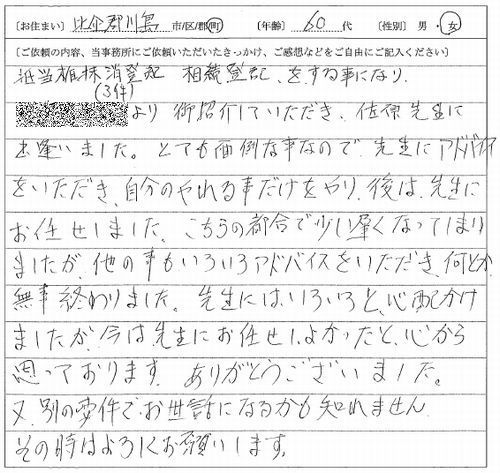 〔お住まい〕 比企郡川島 市/区/郡/町 〔年齢〕 60 代 〔性別〕 男・女
〔ご依頼の内容、当事務所にご依頼いただいたきっかけ、ご感想などをご自由にご記入ください〕
抵当権抹消登記 相続登記、をする事になり、
(3件)
より御紹介していただき、佐原先生に
出逢いました。とても面倒な事なので、先生にアドバイス
をいただき、自分のやれる事だけをやり、後は、先生に
お任せしました、こちらの都合で少し遅くなってしまい
ましたが、他の事もいろいろアドバイスをいただき、何とか
無事終わりました。先生にはいろいろと、心配かけ
ましたが、今は先生にお任せしよかったと、心から
思っております。ありがとうございました。
又、別の要件でお世話になるかも知れません
その時はよろしくお願いします。